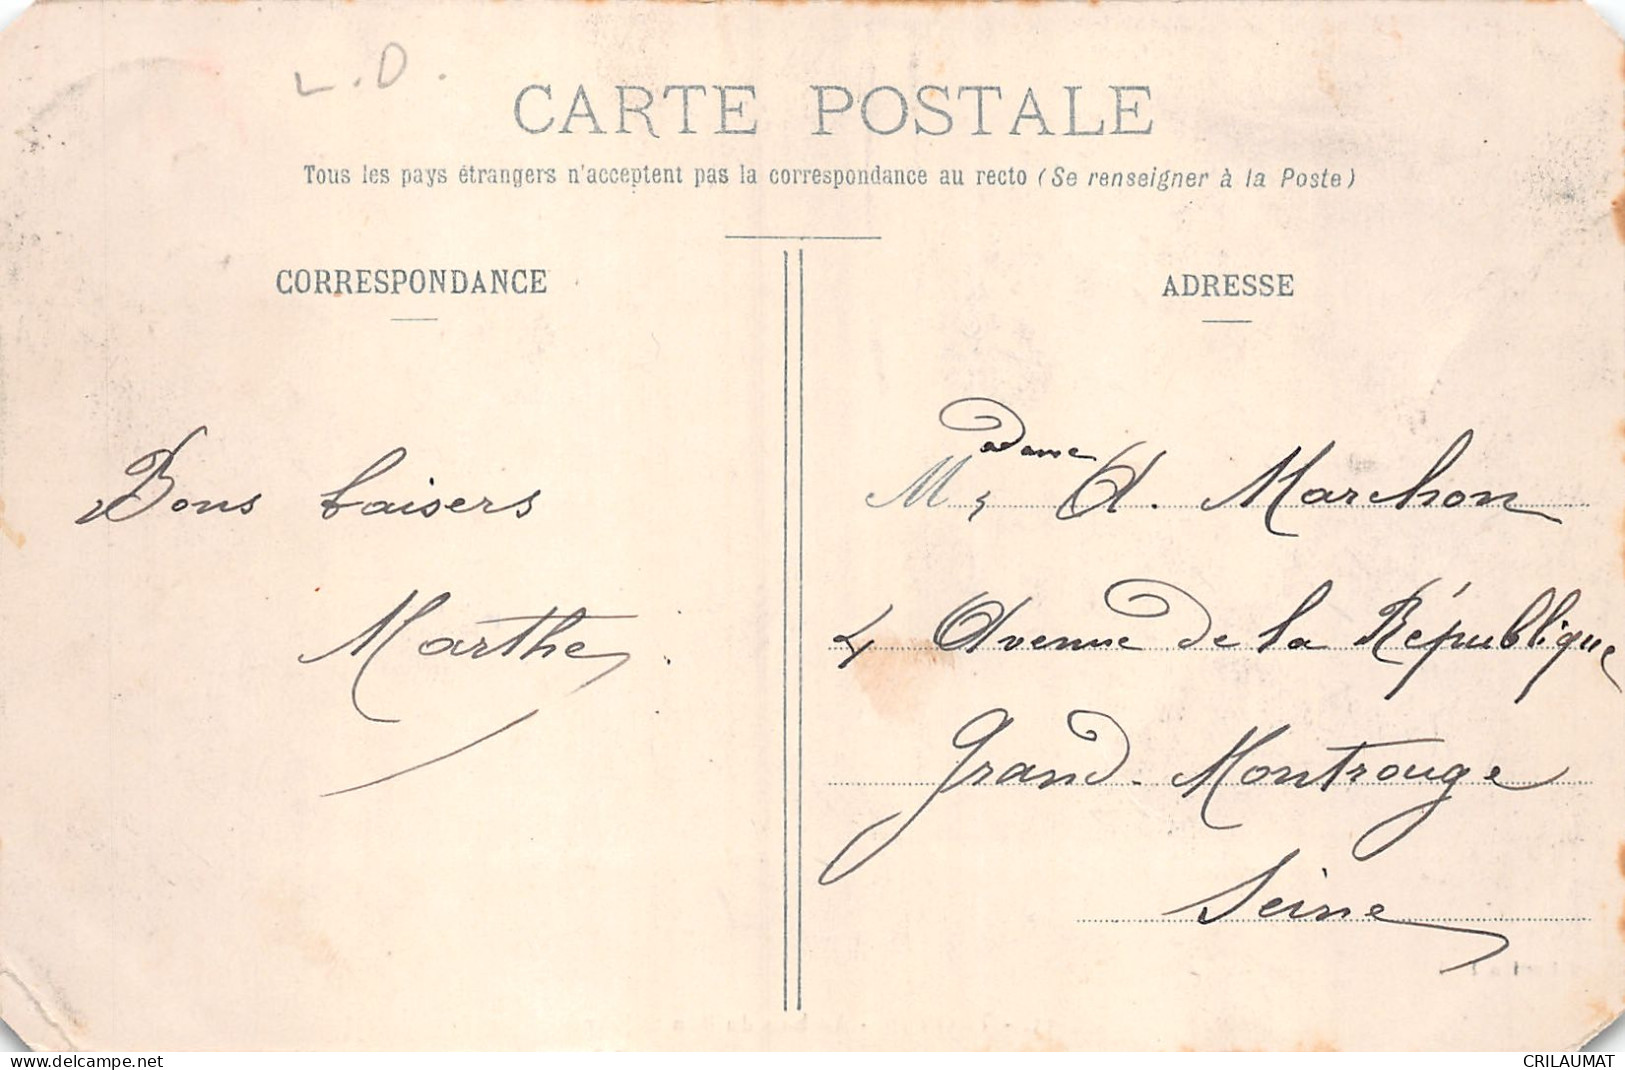 L.D.
CARTE POSTALE
Tous les pays étrangers n'acceptent pas la correspondance au recto (Se renseigner à la Poste)
CORRESPONDANCE
ADRESSE
Bons baisers
Marthe
Madame A. Marchon
4 Avenue de la République
Grand-Montrouge
Seine
www.delcampe.net
CRILAUMAT